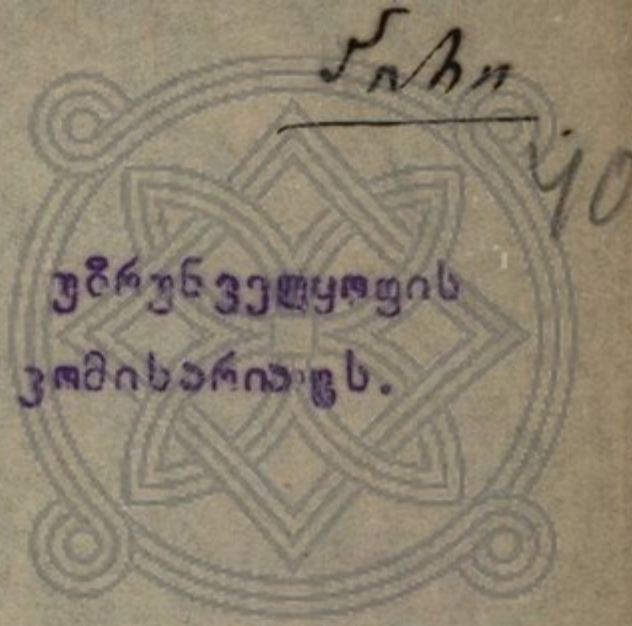 40
უზრუნველყოფის
კომისარიატს.